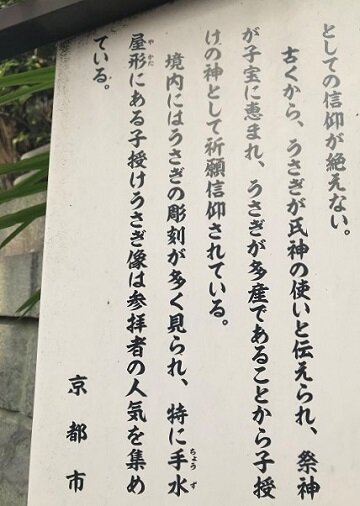 としての信仰が絶えない。
古くから、うさぎが氏神の使いと伝えられ、祭神
が子宝に恵まれ、うさぎが多産であることから子授
けの神として祈願信仰されている。
境内にはうさぎの彫刻が多く見られ、特に手水
ちょうず
屋形にある子授けうさぎ像は参拝者の人気を集め
やかた
ている。
京都市